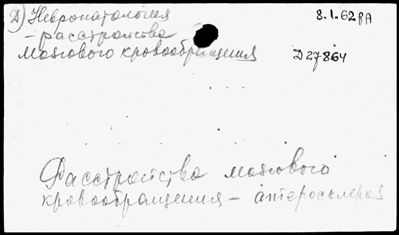 Д) Невропатология
8.1.62 РА
– расстройства
мозгового кровообращения
Д 27864
Расстройства мозгового
кровообращения –